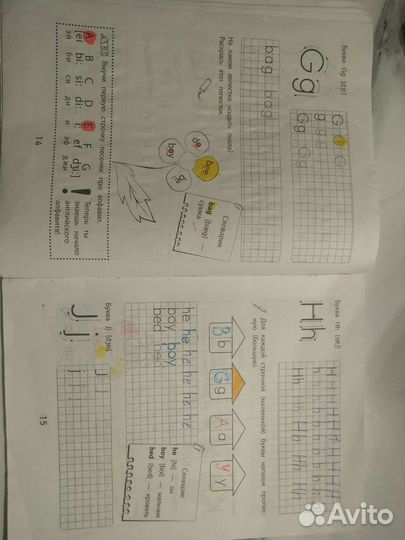 Буква Gg [dʒi:]
G G G
g g g g
Gg Gg
bag bag
На каком лепестке «сидит» пчела?
Раскрась этот лепесток.
do
bee
boy
go
Словарик
bag [bæg] —
сумка
ABC Выучи первую строчку песенки про алфавит.
A B C D E F G
[ei bi: si: di: i: ef dʒi:]
эй би си ди и эф джи
Теперь ты
знаешь начало
английского
алфавита!
14
Буква Hh [eitʃ]
Hh
Hh Hh Hh Hh
Для каждой строчной (маленькой) буквы напиши пропис-
ную (большую).
B b
G g
A a
Y y
he he he he he he
boy boy
bed bed
Словарик
he [hi] — он
boy [bɔi] — мальчик
bed [bed] — кровать
Буква Jj [dʒei]
Jj
15
Avito